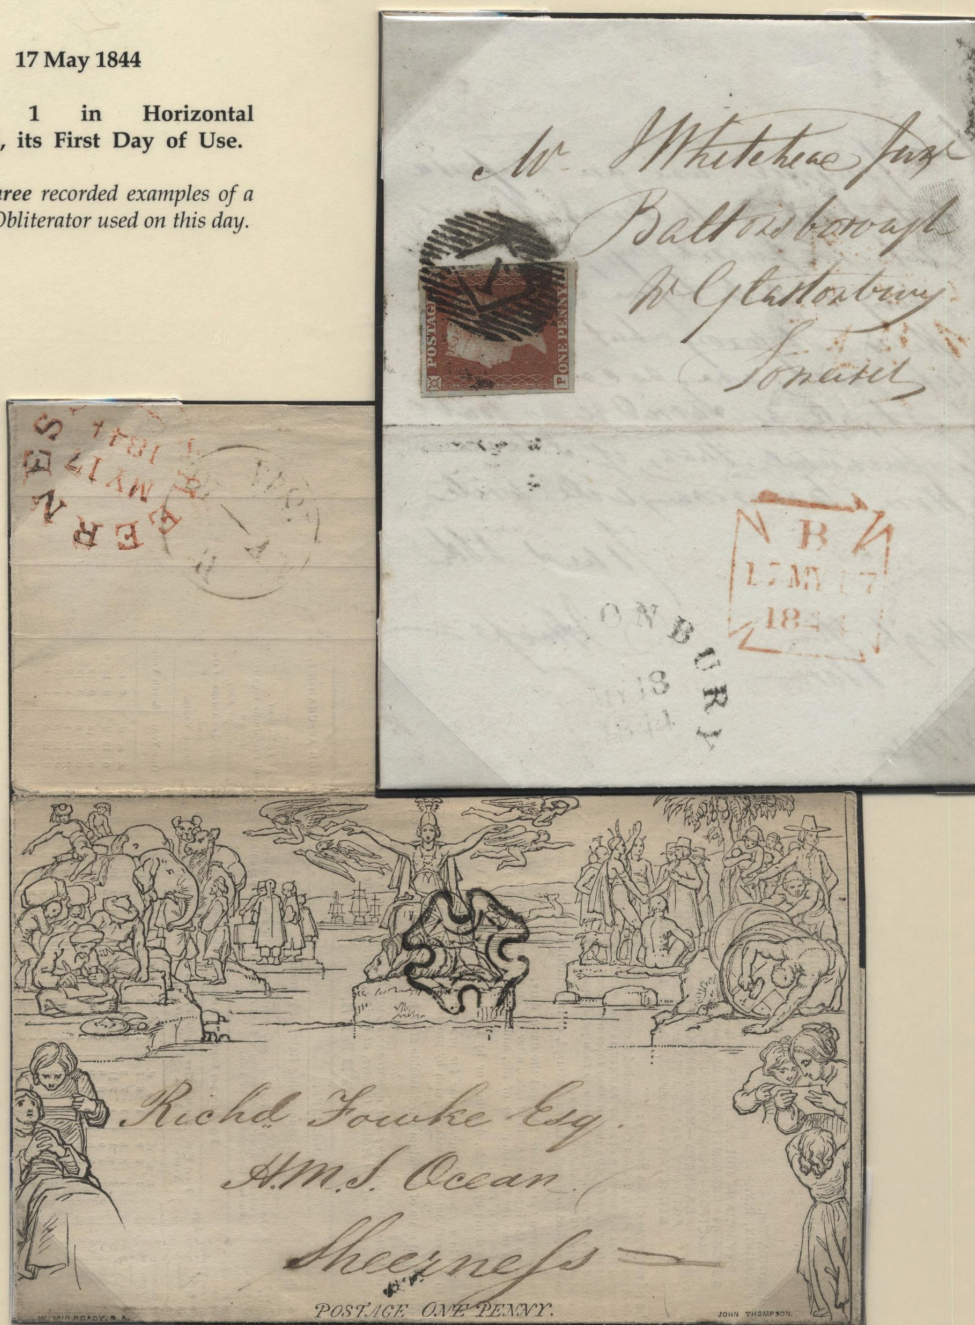 17 May 1844
1 in Horizontal
, its First Day of Use.
ree recorded examples of a
Obliterator used on this day.
Mr
Baltonsborough
Nr Glastonbury
Somerset
1
POSTAGE
ONE PENNY
P
B
17 MY 17
184
ONBURY
18
ERNES
MY 17
184
Richd. Fowke Esq.
H.M.S. Ocean
Sheerness
POSTAGE ONE PENNY.
W. MULREADY. R.A.
JOHN THOMPSON.